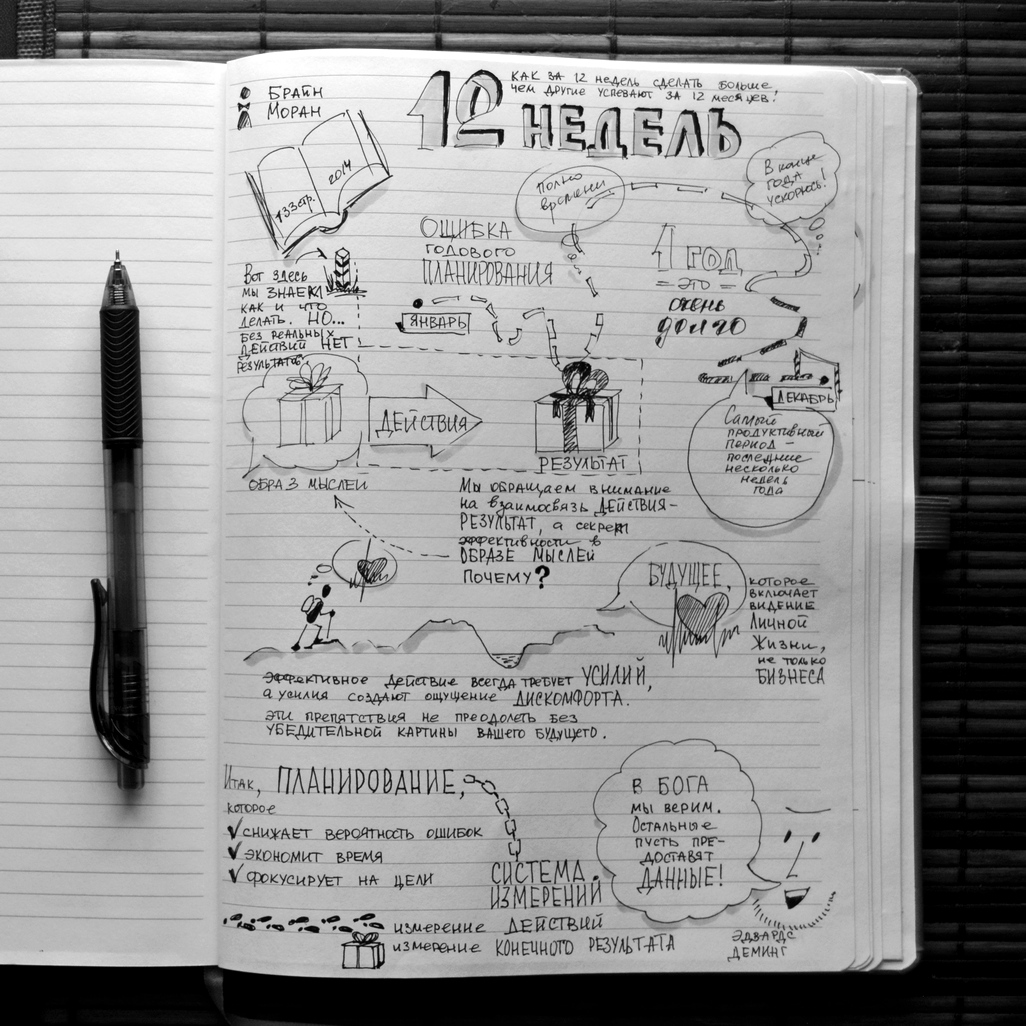 Брайн
Моран
12 НЕДЕЛЬ
КАК ЗА 12 НЕДЕЛЬ СДЕЛАТЬ БОЛЬШЕ,
ЧЕМ ДРУГИЕ УСПЕВАЮТ ЗА 12 МЕСЯЦЕВ!
133стр.
2014
Полно
времени
В конце
года
ускорюсь!
ОШИБКА
ГОДОВОГО
ПЛАНИРОВАНИЯ
1 ГОД
= ЭТО =
ОЧЕНЬ
ДОЛГО
Вот здесь
мы ЗНАЕМ
КАК И ЧТО
ДЕЛАТЬ. НО...
БЕЗ РЕАЛЬНЫХ
ДЕЙСТВИЙ НЕТ
РЕЗУЛЬТАТОВ
ЯНВАРЬ
ДЕКАБРЬ
ДЕЙСТВИЯ
РЕЗУЛЬТАТ
ОБРАЗ МЫСЛЕЙ
Самый
продуктивный
период –
последние
несколько
недель
года
Мы обращаем внимание
на взаимосвязь ДЕЙСТВИЯ–
РЕЗУЛЬТАТ, а секрет
эффективности в
ОБРАЗЕ МЫСЛЕЙ
ПОЧЕМУ?
БУДУЩЕЕ,
которое
включает
видение
личной
жизни,
не только
БИЗНЕСА
Эффективное действие всегда требует УСИЛИЙ,
а усилия создают ощущение ДИСКОМФОРТА.
Эти препятствия не преодолеть без
убедительной картины вашего будущего.
Итак, ПЛАНИРОВАНИЕ,
которое
✓ снижает вероятность ошибок
✓ экономит время
✓ фокусирует на цели
СИСТЕМА
ИЗМЕРЕНИЙ
измерение ДЕЙСТВИЙ
измерение КОНЕЧНОГО РЕЗУЛЬТАТА
В БОГА
мы верим.
Остальные
пусть пре-
доставят
ДАННЫЕ!
ЭДВАРДС
ДЕМИНГ